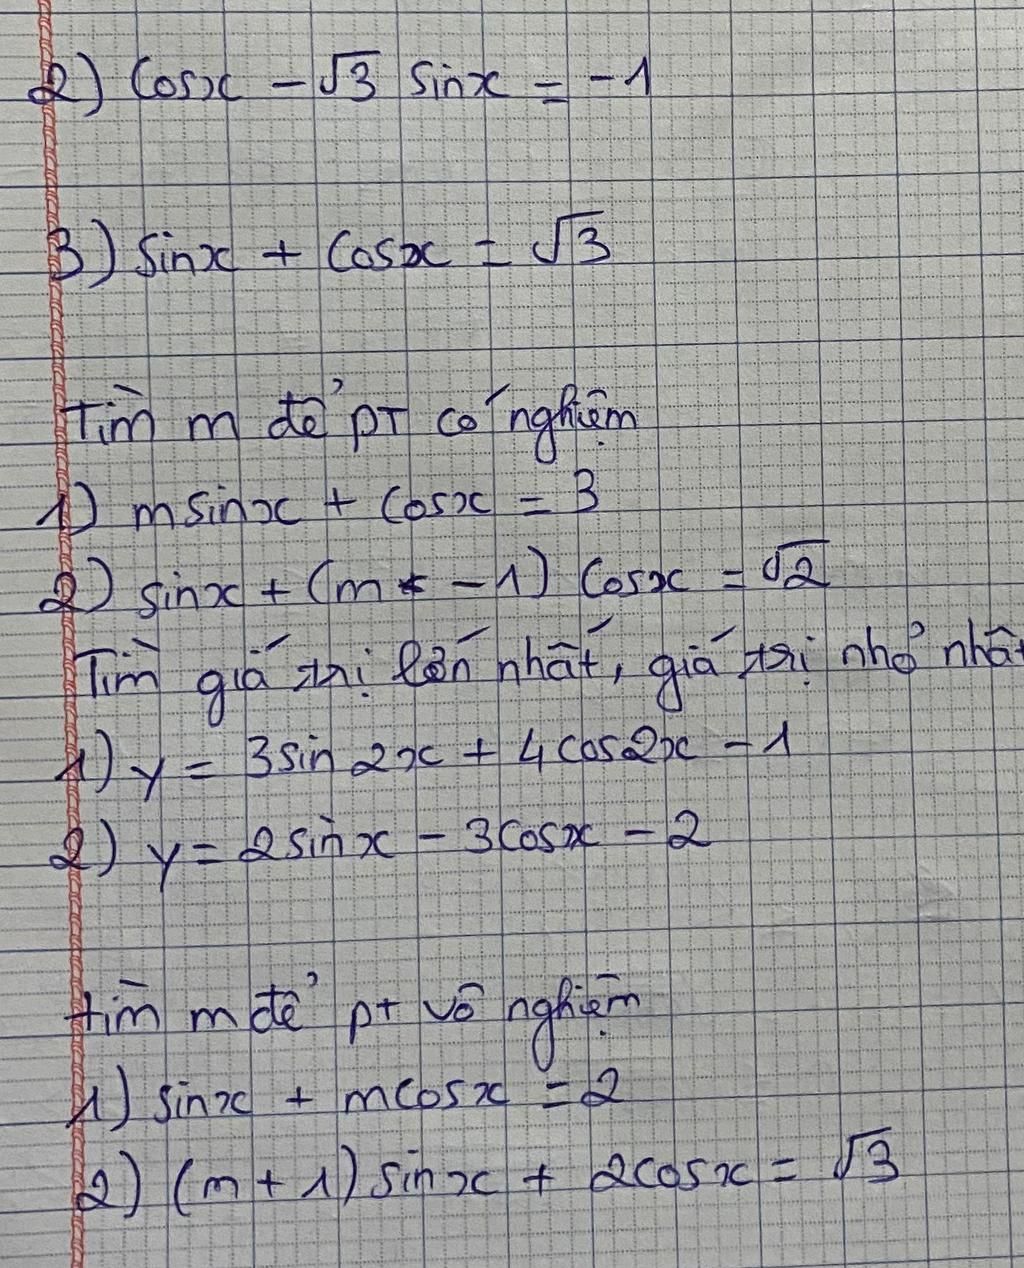 2) Cosx - √3 sinx = -1
3) sinx + cosx = √3
Tìm m để PT có nghiệm
1) msinx + cosx = 3
2) sinx + (m - 1) cosx = √2
Tìm giá trị lớn nhất, giá trị nhỏ nhất
1) y = 3sin2x + 4cos2x - 1
2) y = 2sinx - 3cosx - 2
tìm m để pt vô nghiệm
1) sinx + mcosx = 2
2) (m + 1) sinx + 2cosx = √3